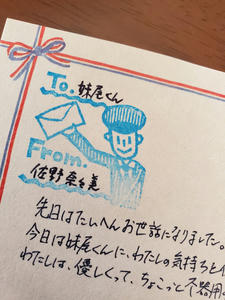 To. 妹尾くん
From.
佐野奈々美
先日はたいへんお世話になりました。
今日は妹尾くんに、わたしの気持ちと
わたしは、優しくって、ちょこっと不器用